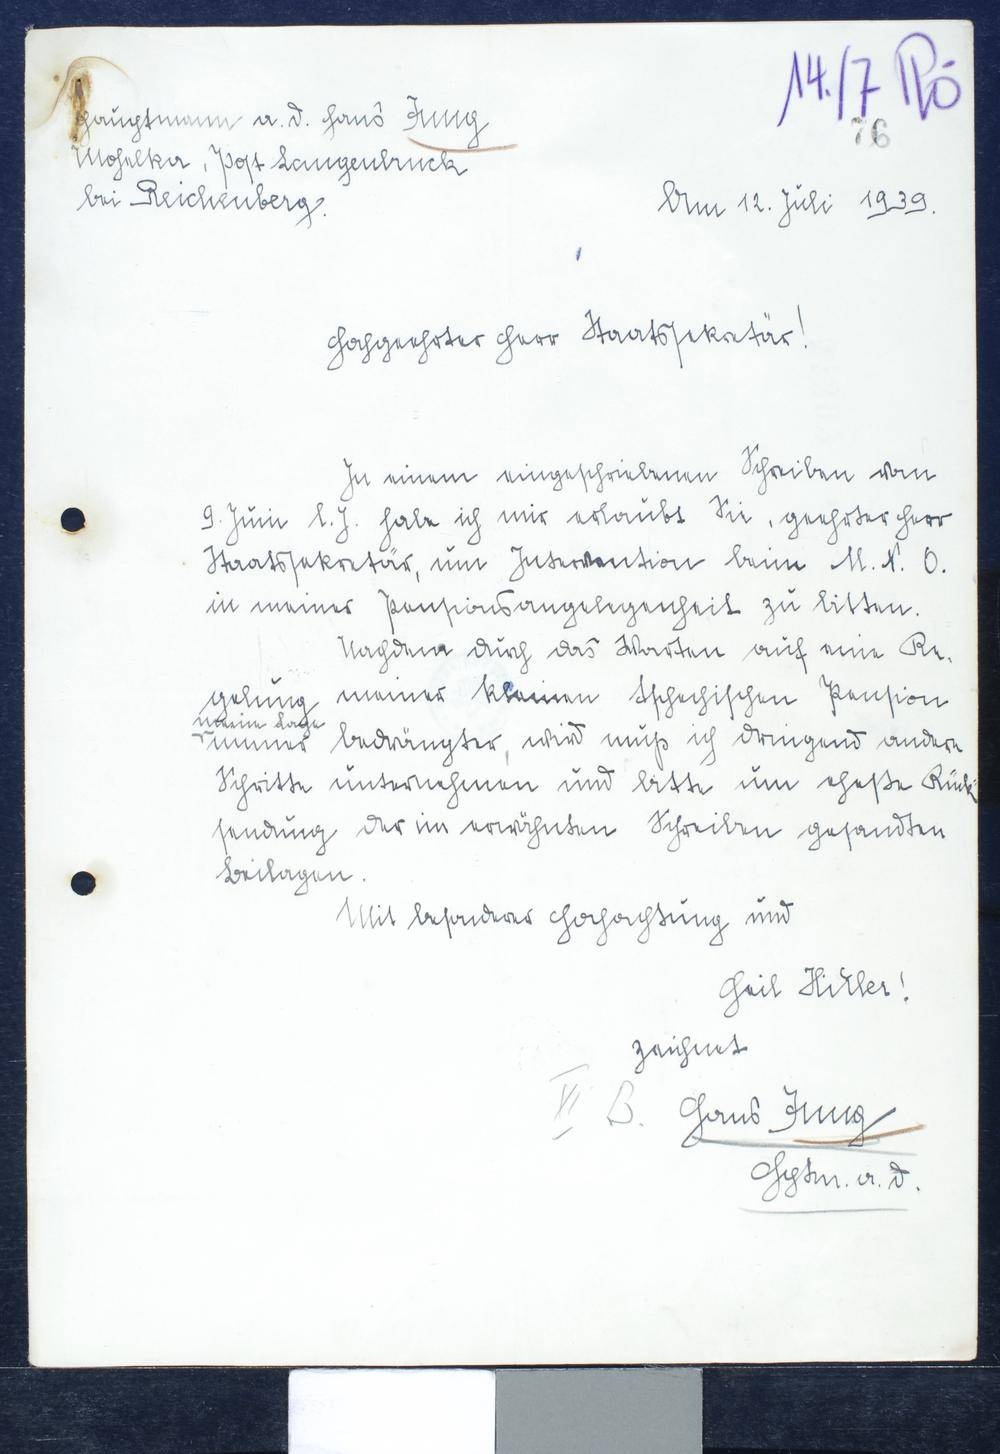 14./7 Rö
76
Hauptmann a. d. Hans Jung
Mohelka, Post Langenbruck
bei Reichenberg.
Am 12. Juli 1939.
Hochgeehrter Herr Staatssekretär!
In einem eingeschriebenen Schreiben vom
9. Juni l. J. habe ich mir erlaubt Sie, geehrter Herr
Staatssekretär, um Intervention beim M. N. O.
in meiner Pensionsangelegenheit zu bitten.
Nachdem durch das Warten auf eine Re-
gelung meiner kleinen tschechischen Pension
meine Lage
immer bedrängter, wird muß ich dringend andere
Schritte unternehmen und bitte um eheste Rück-
sendung der im erwähnten Schreiben gesandten
Beilagen.
Mit besonderer Hochachtung und
Heil Hitler!
zeichnet
VI B. Hans Jung
Hptm. a. d.